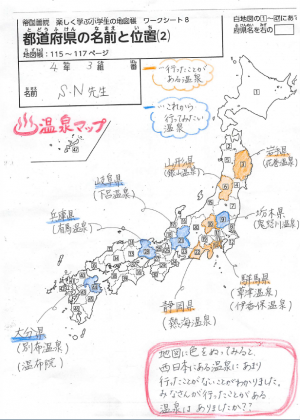 帝国書院 楽しく学ぶ小学生の地図帳 ワークシート8
都道府県の名前と位置(2)
地図帳：115～117ページ
4年 3組 番
名前 S・N 先生
白地図の①～㊼にあ
府県名を右の
♨温泉マップ
…行ったことが
ある温泉
…これから
行ってみたい
温泉
山形県
(銀山温泉)
岩手県
(花巻温泉)
岐阜県
(下呂温泉)
兵庫県
(有馬温泉)
栃木県
(鬼怒川温泉)
群馬県
(草津温泉)
(伊香保温泉)
静岡県
(熱海温泉)
大分県
(別府温泉)
(湯布院)
地図に色をぬってみると、
西日本にある温泉にあまり
行ったことがないことがわかりました。
みなさんが行ったことがある
温泉はありましたか？？